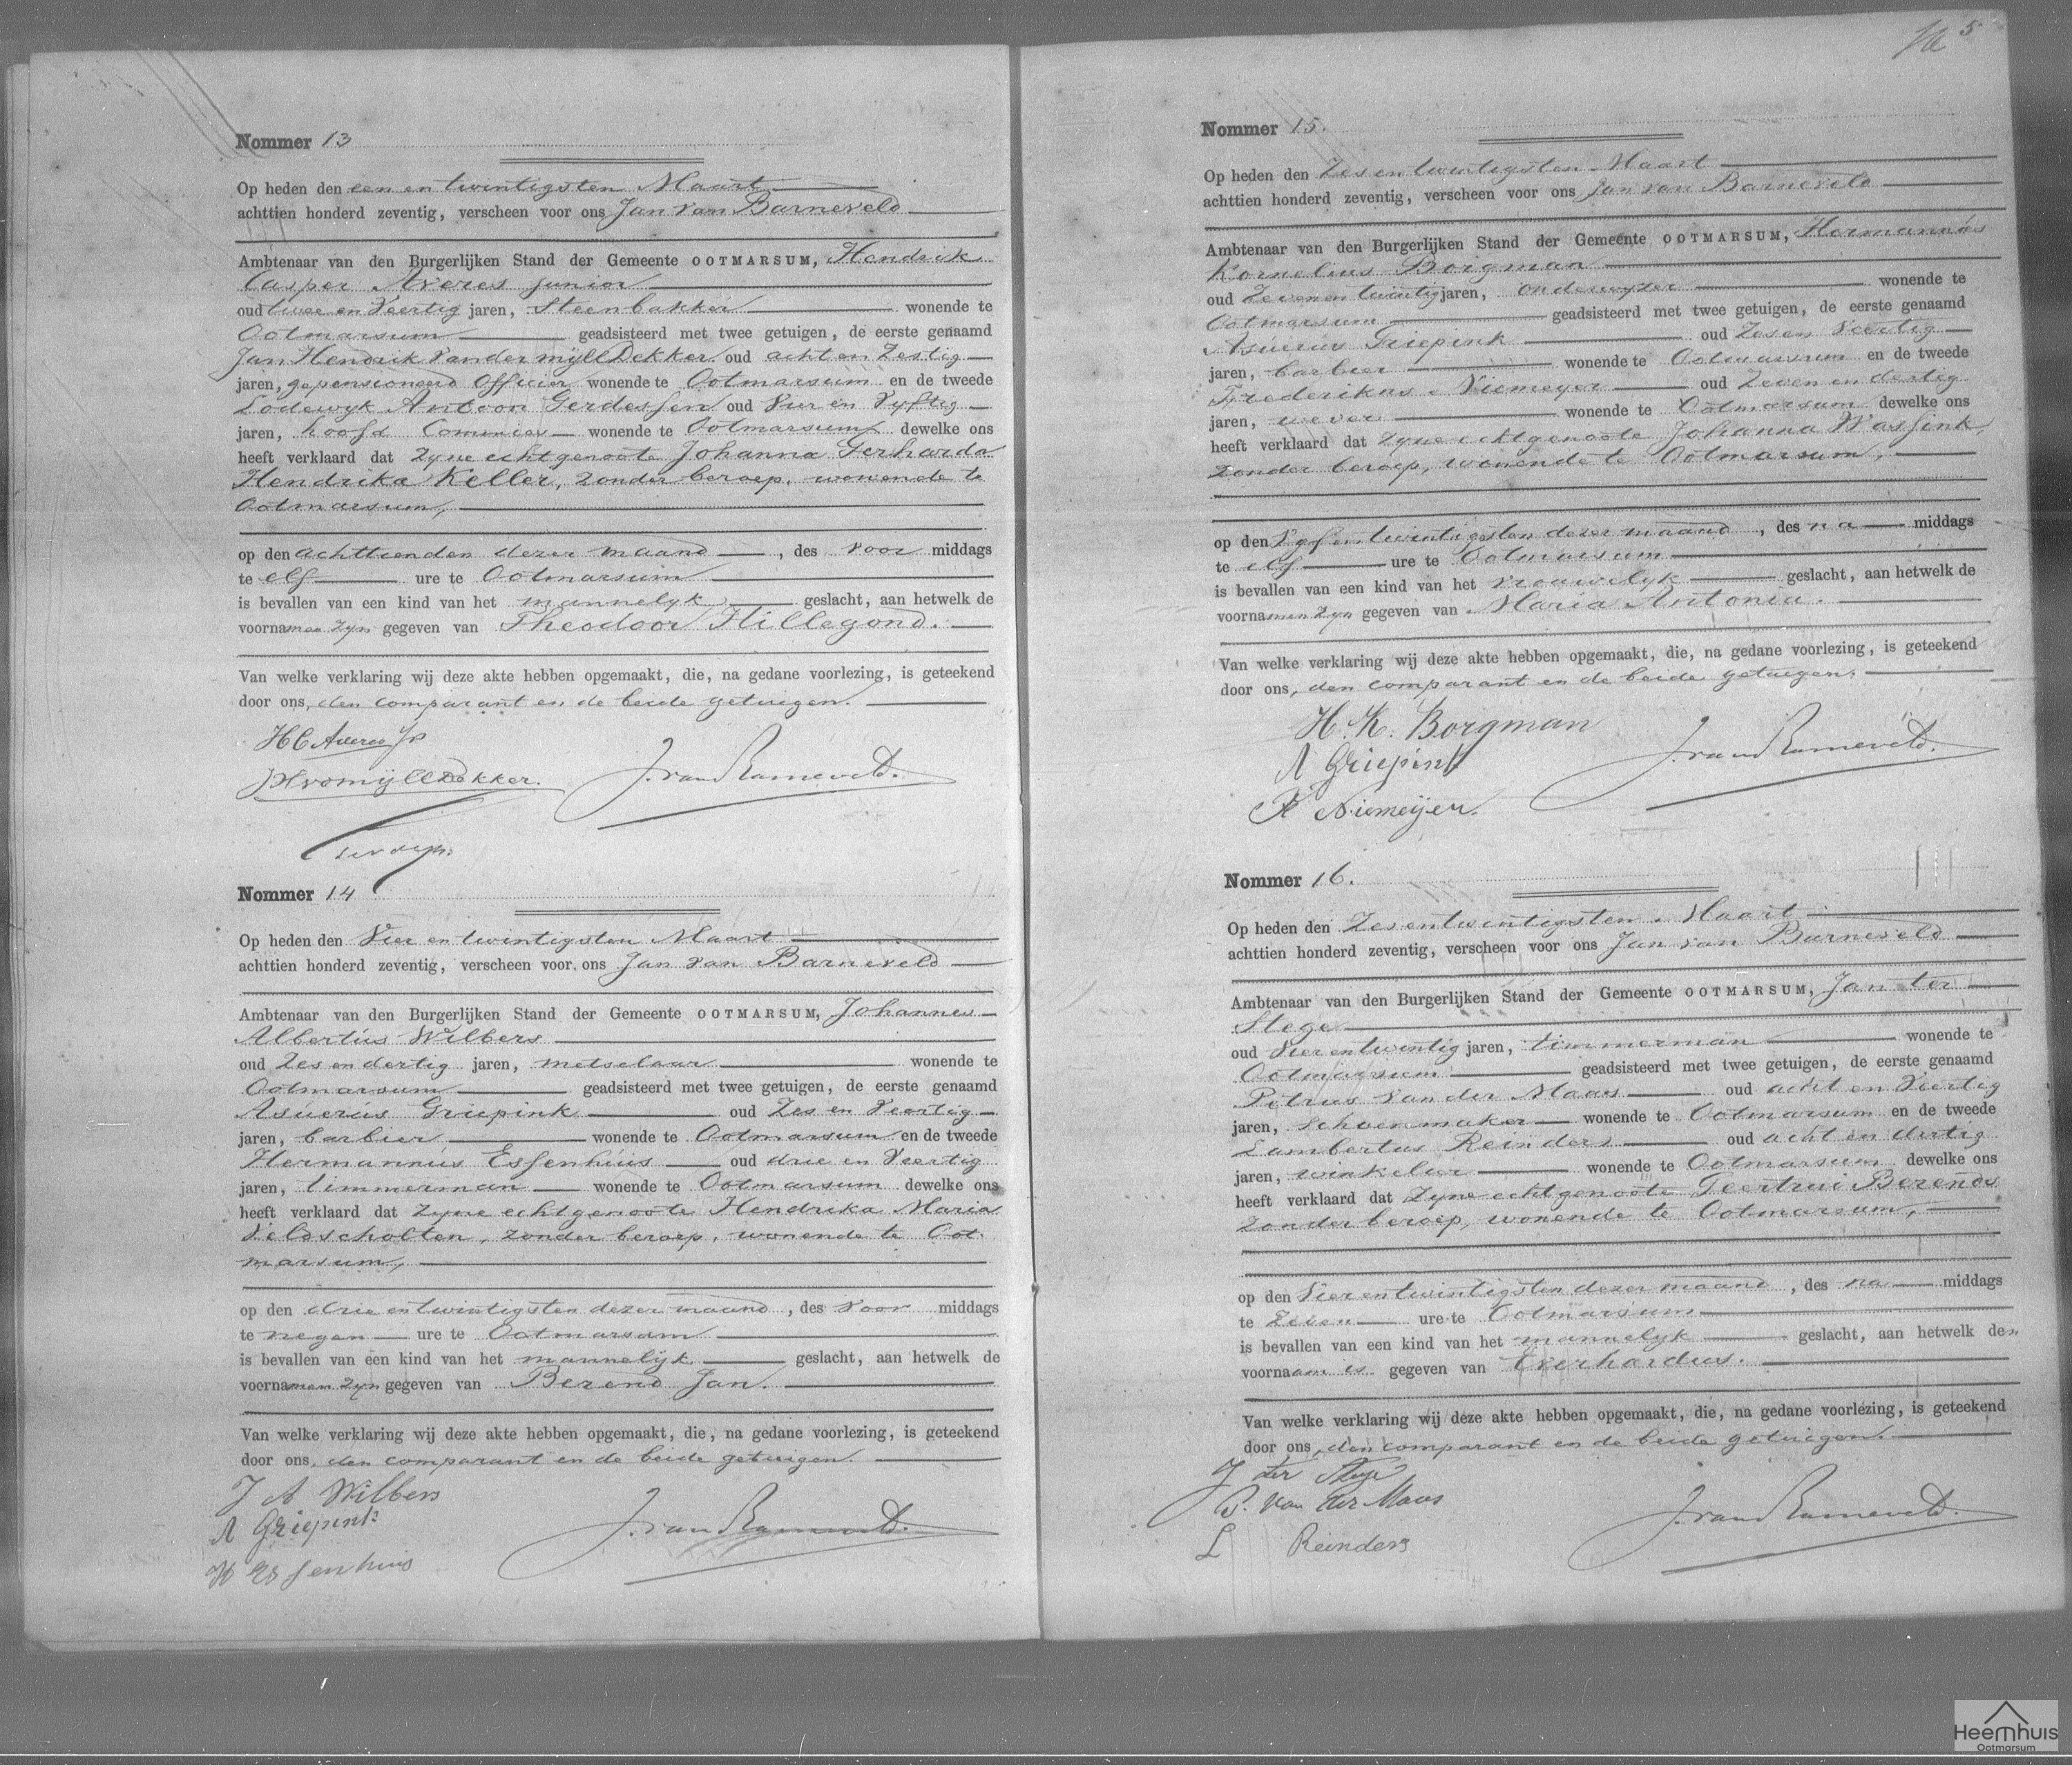 Nommer 13
Op heden den een en twintigsten Maart
achttien honderd zeventig, verscheen voor ons Jan van Barneveld
Ambtenaar van den Burgerlijken Stand der Gemeente OOTMARSUM, Hendrik
Casper Averes junior
oud twee en Veertig jaren, Steenbakker wonende te
Ootmarsum geadsisteerd met twee getuigen, de eerste genaamd
Jan Hendrik Vander Mijll Dekker oud acht en Zestig
jaren, gepensioneerd Officier wonende te Ootmarsum en de tweede
Lodewyk Antoon Gerdessen oud Vier en Vyftig
jaren, hoofd Commies wonende te Ootmarsum dewelke ons
heeft verklaard dat Zyne echtgenoote Johanna Gerharda
Hendrika Keller, Zonder beroep, wonende te
Ootmarsum,
op den achttienden dezer maand, des voor middags
te elf ure te Ootmarsum
is bevallen van een kind van het mannelyk geslacht, aan hetwelk de
voornamen zyn gegeven van Theodoor Hillegond.
Van welke verklaring wij deze akte hebben opgemaakt, die, na gedane voorlezing, is geteekend
door ons, den comparant en de beide getuigen.
HC Averes Jr
JHvdMijllDekker. J. van Barneveld.
Nommer 14
Op heden den Vier en twintigsten Maart
achttien honderd zeventig, verscheen voor ons Jan van Barneveld
Ambtenaar van den Burgerlijken Stand der Gemeente OOTMARSUM, Johannes
Albertus Wilbers
oud Zes en dertig jaren, metselaar wonende te
Ootmarsum geadsisteerd met twee getuigen, de eerste genaamd
Asuerus Griepink oud Zes en Veertig
jaren, barbier wonende te Ootmarsum en de tweede
Hermannus Essenhuis oud drie en Veertig
jaren, timmerman wonende te Ootmarsum dewelke ons
heeft verklaard dat zyne echtgenoote Hendrika Maria
Veldscholten, Zonder beroep, wonende te Oot
marsum,
op den drie en twintigsten dezer maand, des voor middags
te negen ure te Ootmarsum
is bevallen van een kind van het mannelijk geslacht, aan hetwelk de
voornamen zyn gegeven van Berend Jan.
Van welke verklaring wij deze akte hebben opgemaakt, die, na gedane voorlezing, is geteekend
door ons, den comparant en de beide getuigen.
J A Wilbers
A Griepink J. van Barneveld.
H Essenhuis
5
Nommer 15.
Op heden den Zes en twintigsten Maart
achttien honderd zeventig, verscheen voor ons Jan van Barneveld
Ambtenaar van den Burgerlijken Stand der Gemeente OOTMARSUM, Hermannus
Kornelius Borgman
oud Zeven en twintig jaren, onderwyzer wonende te
Ootmarsum geadsisteerd met twee getuigen, de eerste genaamd
Asuerus Griepink oud Zes en Veertig
jaren, barbier wonende te Ootmarsum en de tweede
Frederikus Niemeyer oud Zeven en dertig
jaren, wever wonende te Ootmarsum dewelke ons
heeft verklaard dat zyne echtgenoote Johanna Wassink,
zonder beroep, wonende te Ootmarsum,
op den Vyf en twintigsten dezer maand, des na middags
te elf ure te Ootmarsum
is bevallen van een kind van het vrouwelyk geslacht, aan hetwelk de
voornamen zyn gegeven van Maria Antonia.
Van welke verklaring wij deze akte hebben opgemaakt, die, na gedane voorlezing, is geteekend
door ons, den comparant en de beide getuigen.
H. K. Borgman
A Griepink J. van Barneveld.
F Niemeijer.
Nommer 16.
Op heden den Zes en twintigsten Maart
achttien honderd zeventig, verscheen voor ons Jan van Barneveld
Ambtenaar van den Burgerlijken Stand der Gemeente OOTMARSUM, Jan ter
Stege
oud Vier en twintig jaren, timmerman wonende te
Ootmarsum geadsisteerd met twee getuigen, de eerste genaamd
Petrus van der Maas oud acht en Veertig
jaren, Schoenmaker wonende te Ootmarsum en de tweede
Lambertus Reinders oud acht en dertig
jaren, winkelier wonende te Ootmarsum dewelke ons
heeft verklaard dat Zyne echtgenoote Geertrui Berends
Zonder beroep, wonende te Ootmarsum,
op den Vier en twintigsten dezer maand, des na middags
te Zeven ure te Ootmarsum
is bevallen van een kind van het mannelyk geslacht, aan hetwelk den
voornaam is gegeven van Everhardus.
Van welke verklaring wij deze akte hebben opgemaakt, die, na gedane voorlezing, is geteekend
door ons, den comparant en de beide getuigen.
J ter Stege
P. van der Maas J. van Barneveld.
L Reinders
Heemhuis
Ootmarsum